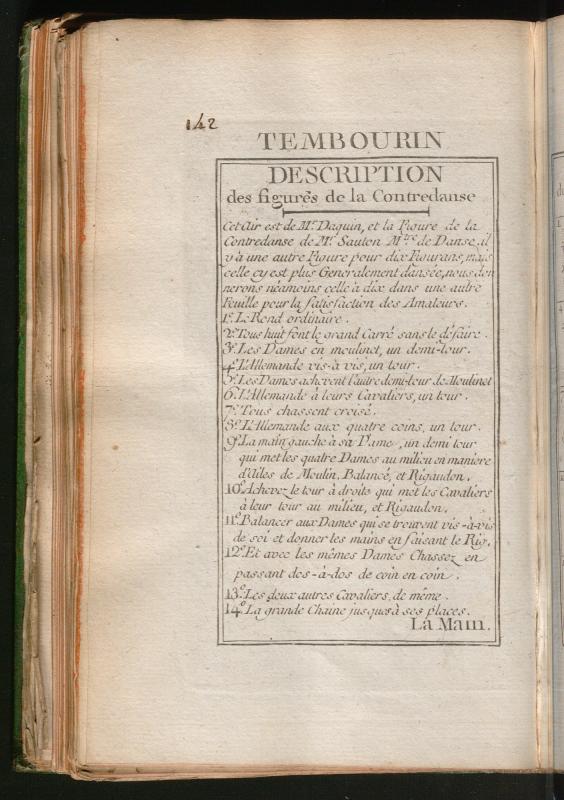 142
TEMBOURIN
DESCRIPTION
des figures de la Contredanse
Cet Air est de Mr. Daquin, et la Figure de la
Contredanse de Mr. Sauton Mtre. de Danse, il
y à une autre Figure pour dix Figurans, mais
celle cy est plus Generalement dansée, nous don
nerons néamoins celle à dix dans une autre
Feuille pour la satisfaction des Amateurs.
1º. Le Rond ordinaire.
2º. Tous huit font le grand Carré sans le défaire.
3º. Les Dames en moulinet, un demi-tour.
4º. L'Allemande vis-à vis, un tour.
5º. Les Dames achevent l'autre demi-tour de Moulinet
6º. L'Allemande à leurs Cavaliers, un tour.
7º. Tous chassent croisé.
8º. L'Allemande aux quatre coins, un tour.
9º. La main gauche à sa Dame, un demi tour
qui met les quatre Dames au milieu en maniere
d'ailes de Moulin, Balancé, et Rigaudon.
10º. Achevez le tour à droite qui met les Cavaliers
à leur tour au milieu, et Rigaudon.
11º. Balancer aux Dames qui se trouvent vis-à-vis
de soi et donner les mains en faisant le Rig.
12º. Et avec les mêmes Dames Chassez en
passant dos-à-dos de coin en coin.
13º. Les deux autres Cavaliers, de même.
14º. La grande Chaine jusques à ses places.
La Main.